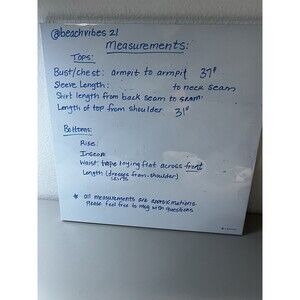 @beachvibes21
Measurements:
Tops:
Bust/chest: armpit to armpit 37"
Sleeve Length: to neck seam
Shirt length from back seam to seam:
Length of top from shoulder 31"
Bottoms:
Rise:
Inseam
Waist: laying flat across front
Length (dresses from shoulder)
skirts
* all measurements are approximations.
Please feel free to msg with questions